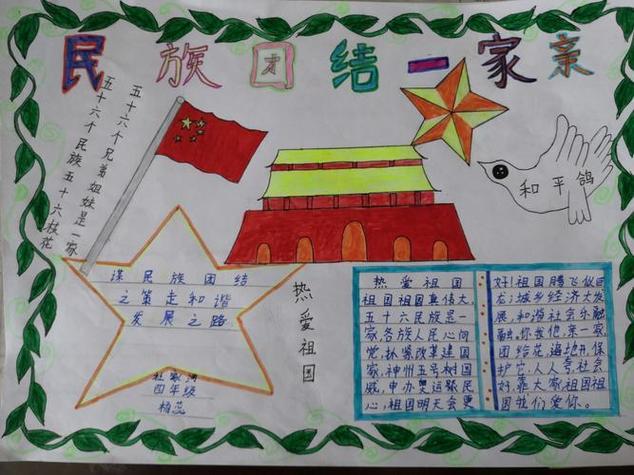 民族团结一家亲
五十六个民族五十六枝花
五十六个兄弟姐妹是一家
和平鸽
热爱祖国
谋民族团结
之策走和谐
发展之路
四年级
热爱祖国
祖国祖国真伟大,
五十六民族是一
家各族人民心向
党,
建国
家,神州五号树国
威,申办奥运聚民
心,祖国明天会更
好!祖国腾飞似巨
龙;城乡经济大发
展,和谐社会乐融
融,你我他,亲一家,
团结花,遍地开,保
护它,人人夸,社会
好,靠大家,祖国祖
国我们爱你。